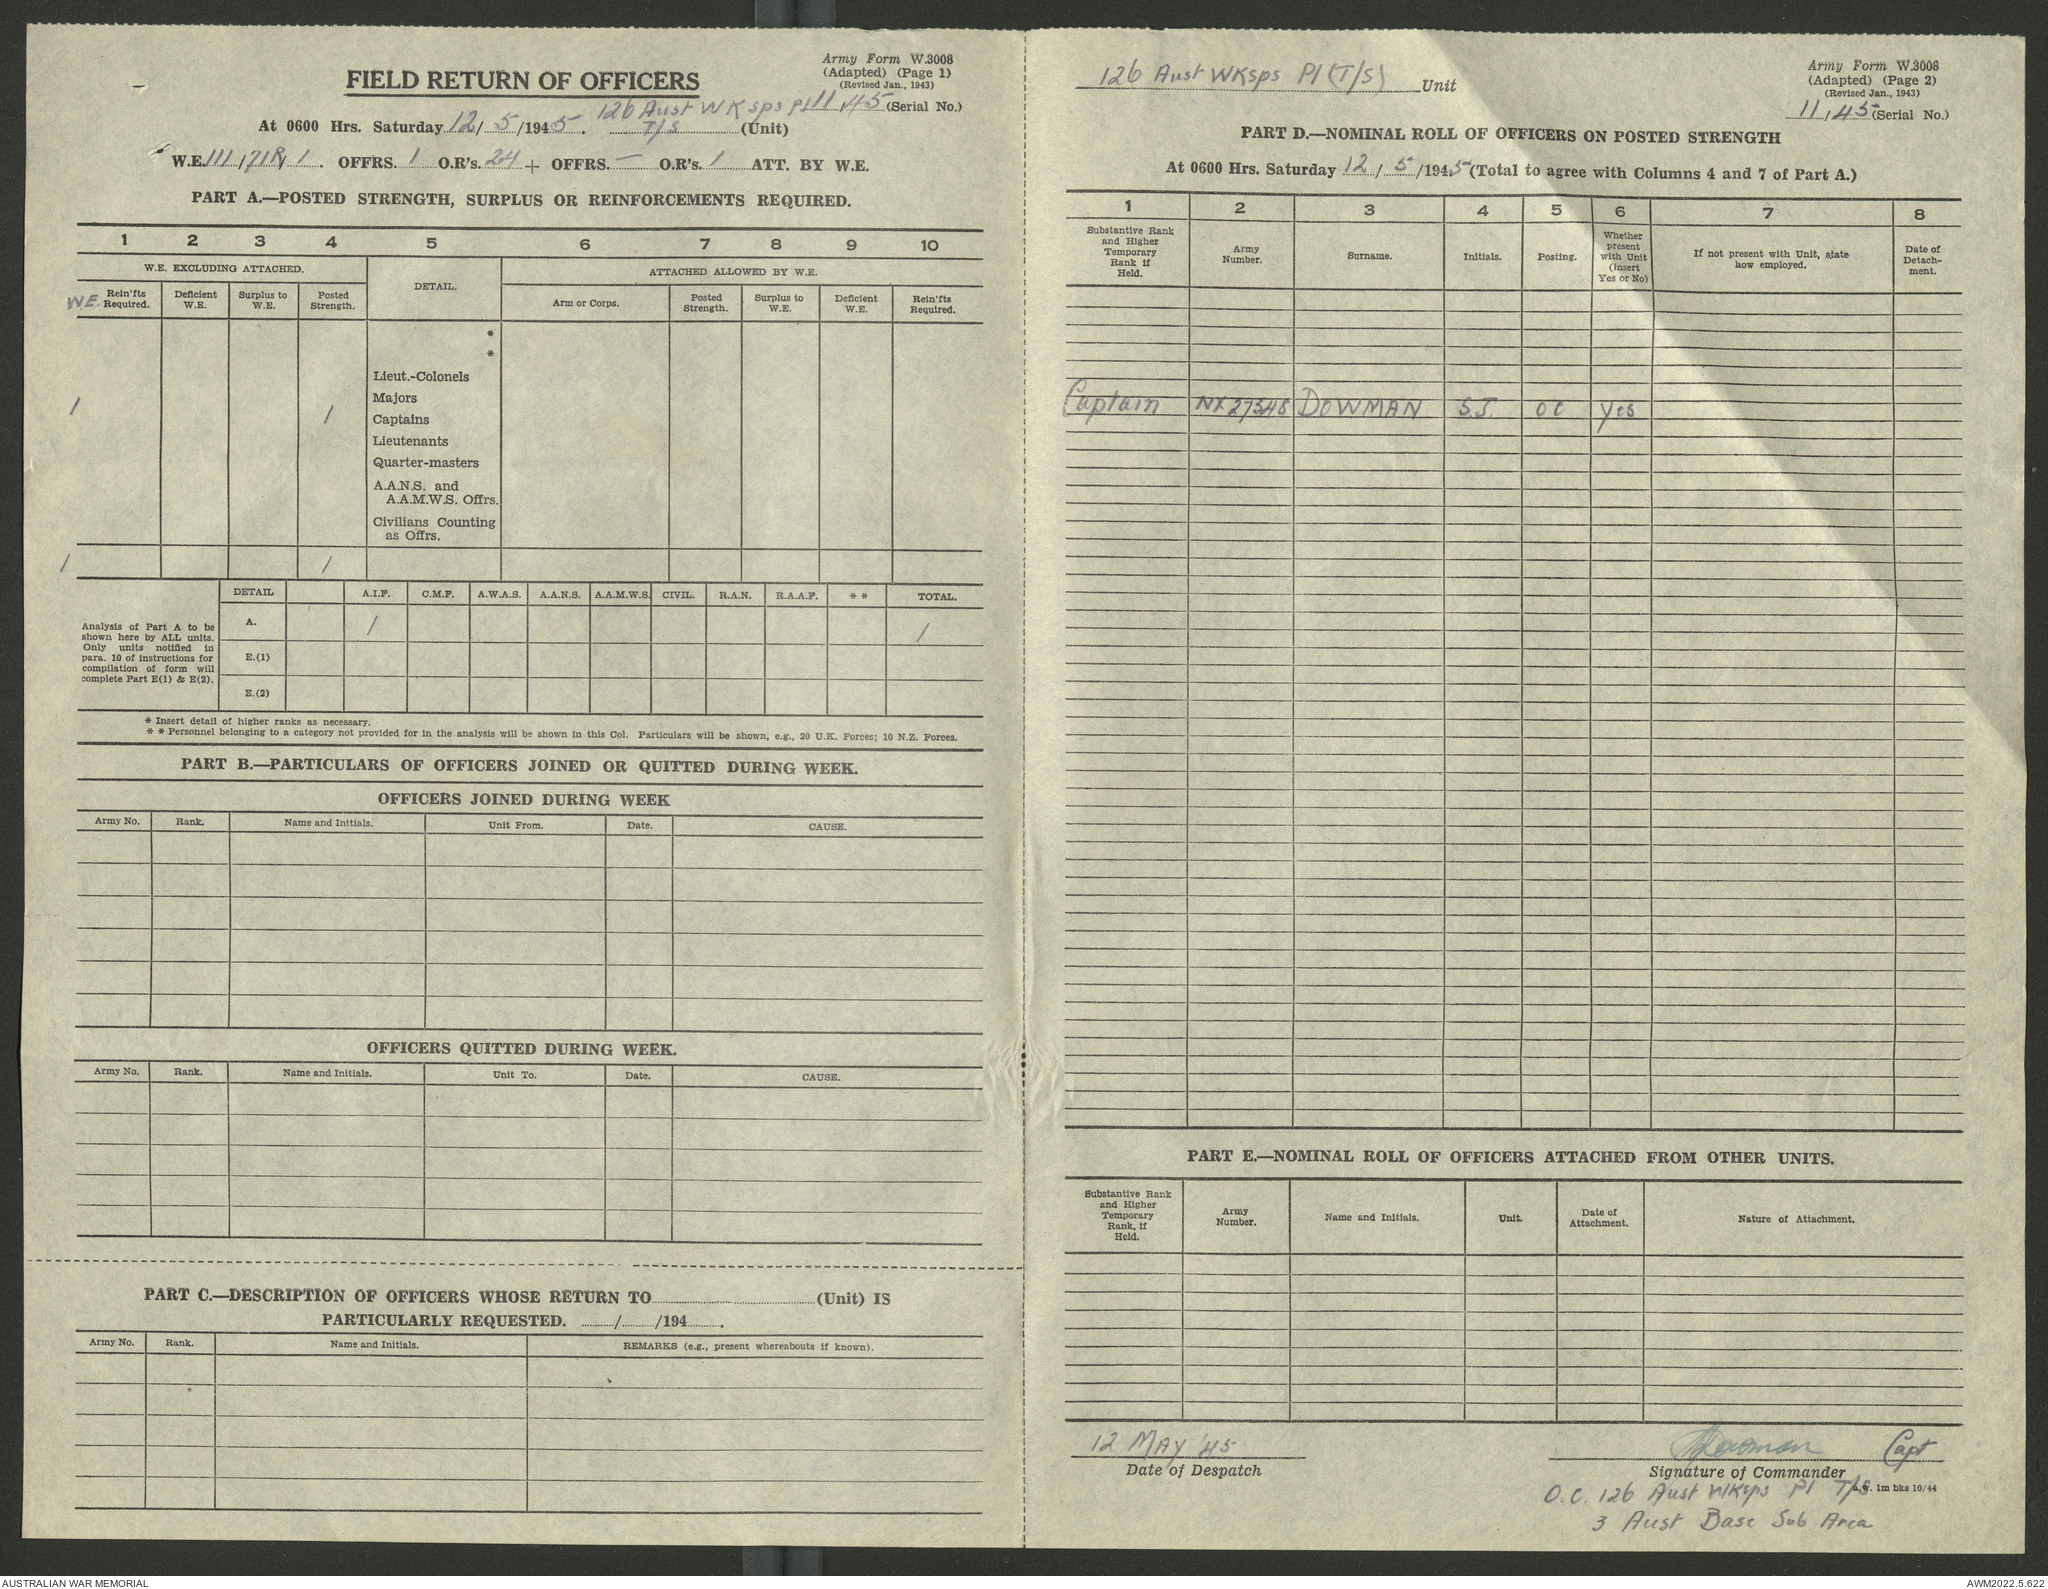 Army Form W.3008
(Adapted) (Page 1)
(Revised Jan., 1943)
FIELD RETURN OF OFFICERS
126 Aust WKsps Pl 11/45 (Serial No.)
At 0600 Hrs. Saturday 12/5/1945. T/S (Unit)
W.E. III/71R/1. OFFRS. 1 O.R's. 24 + OFFRS. — O.R's. 1 ATT. BY W.E.
PART A.—POSTED STRENGTH, SURPLUS OR REINFORCEMENTS REQUIRED.
1 2 3 4 5 6 7 8 9 10
W.E. EXCLUDING ATTACHED. DETAIL. ATTACHED ALLOWED BY W.E.
W.E. Rein'fts Required. Deficient W.E. Surplus to W.E. Posted Strength. Arm or Corps. Posted Strength. Surplus to W.E. Deficient W.E. Rein'fts Required.
*
*
Lieut.-Colonels
Majors
1 1 Captains
Lieutenants
Quarter-masters
A.A.N.S. and
A.A.M.W.S. Offrs.
Civilians Counting
as Offrs.
1 1
DETAIL A.I.F. C.M.F. A.W.A.S. A.A.N.S. A.A.M.W.S. CIVIL. R.A.N. R.A.A.F. * * TOTAL.
Analysis of Part A to be
shown here by ALL units.
Only units notified in
para. 10 of instructions for
compilation of form will
complete Part E(1) & E(2).
A. 1 1
E.(1)
E.(2)
* Insert detail of higher ranks as necessary.
* * Personnel belonging to a category not provided for in the analysis will be shown in this Col. Particulars will be shown, e.g., 20 U.K. Forces; 10 N.Z. Forces.
PART B.—PARTICULARS OF OFFICERS JOINED OR QUITTED DURING WEEK.
OFFICERS JOINED DURING WEEK
Army No. Rank. Name and Initials. Unit From. Date. CAUSE.
OFFICERS QUITTED DURING WEEK.
Army No. Rank. Name and Initials. Unit To. Date. CAUSE.
PART C.—DESCRIPTION OF OFFICERS WHOSE RETURN TO (Unit) IS
PARTICULARLY REQUESTED. / /194 .
Army No. Rank. Name and Initials. REMARKS (e.g., present whereabouts if known).
126 Aust WKsps Pl (T/S) Unit
Army Form W.3008
(Adapted) (Page 2)
(Revised Jan., 1943)
11/45 (Serial No.)
PART D.—NOMINAL ROLL OF OFFICERS ON POSTED STRENGTH
At 0600 Hrs. Saturday 12/5/1945 (Total to agree with Columns 4 and 7 of Part A.)
1 2 3 4 5 6 7 8
Substantive Rank and Higher Temporary Rank if Held. Army Number. Surname. Initials. Posting. Whether present with Unit (insert Yes or No) If not present with Unit, state how employed. Date of Detach-ment.
Captain NX27348 DOWMAN S.J. OC Yes
PART E.—NOMINAL ROLL OF OFFICERS ATTACHED FROM OTHER UNITS.
Substantive Rank and Higher Temporary Rank, if Held. Army Number. Name and Initials. Unit. Date of Attachment. Nature of Attachment.
12 MAY '45 SJDowman Capt
Date of Despatch Signature of Commander
O.C. 126 Aust WKsps Pl T/S
a.w. 1m bks 10/44
3 Aust Base Sub Area
AUSTRALIAN WAR MEMORIAL
AWM2022.5.622